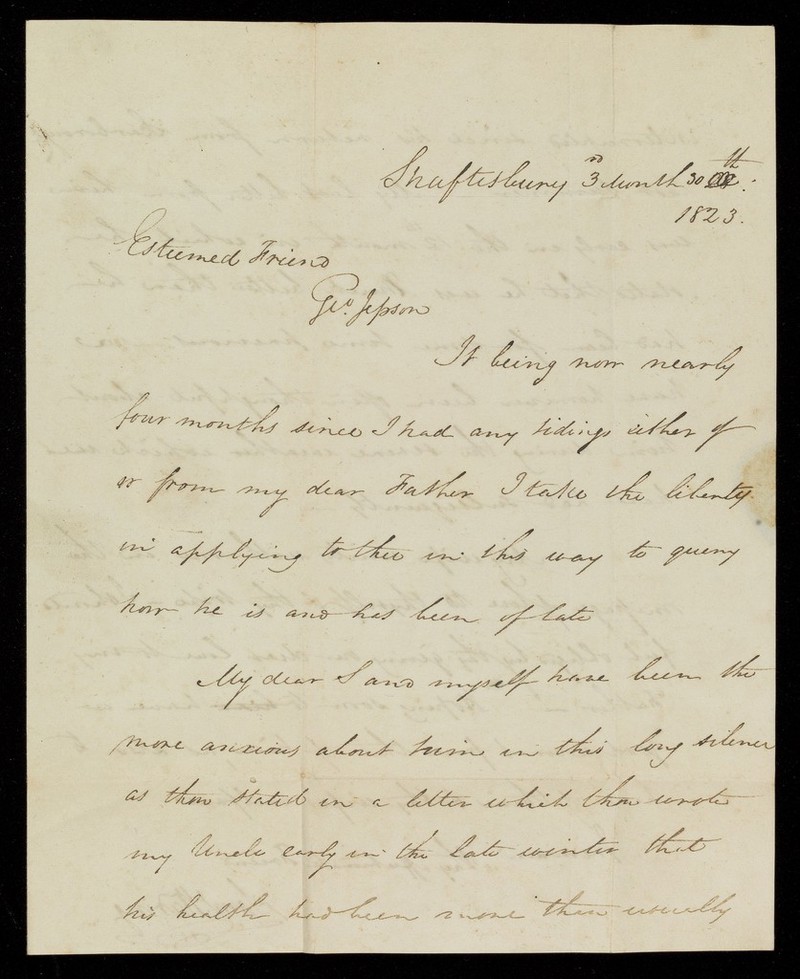 Shaftesbury 3rd Month 30th:
1823.
Esteemed Friend
Geo. Jepson
It being now nearly
four months since I had any tidings either of
or from my dear Father I take the liberty
in applying to thee in this way to query
how he is and has been of late
My dear S and myself have been the
more anxious about him in this long silence
as thou stated in a letter which thou wrote
my Uncle early in the late winter that
his health had been more than usually